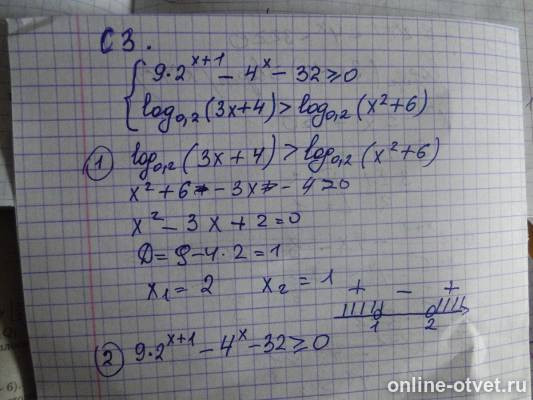 С3.
9·2^{x+1} - 4^x - 32 ≥ 0
log_{0,2}(3x+4) > log_{0,2}(x²+6)
① log_{0,2}(3x+4) > log_{0,2}(x²+6)
x²+6 - 3x - 4 > 0
x² - 3x + 2 = 0
D = 9 - 4·2 = 1
x₁ = 2 x₂ = 1
+ - +
1 2
② 9·2^{x+1} - 4^x - 32 ≥ 0
online-otvet.ru